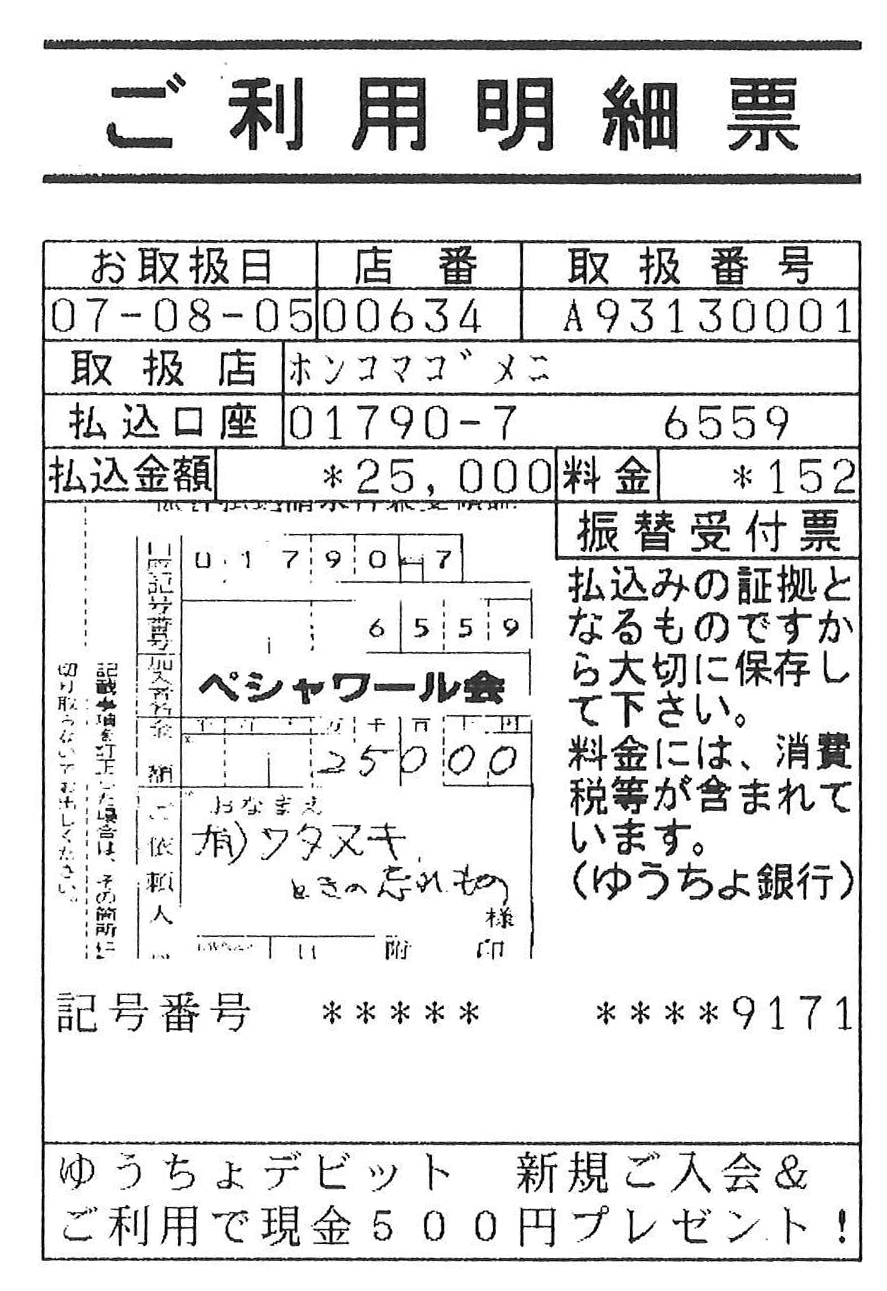 ご利用明細票
お取扱日 店番 取扱番号
07-08-05 00634 A93130001
取扱店 ホンコマゴメニ
払込口座 01790-7 6559
払込金額 *25,000 料金 *152
振替受付票
払込みの証拠と
なるものですか
ら大切に保存し
て下さい。
料金には、消費
税等が含まれて
います。
(ゆうちょ銀行)
口座記号番号 01790-7
6559
加入者名 ペシャワール会
金額 千百十万千百十円
25000
ご依頼人
おなまえ
(有)ワタヌキ
ときの忘れもの
様
附 印
記載事項を訂正した場合は、その箇所に
切り取らないでお出しください。
記号番号 ***** ****9171
ゆうちょデビット 新規ご入会&
ご利用で現金500円プレゼント!